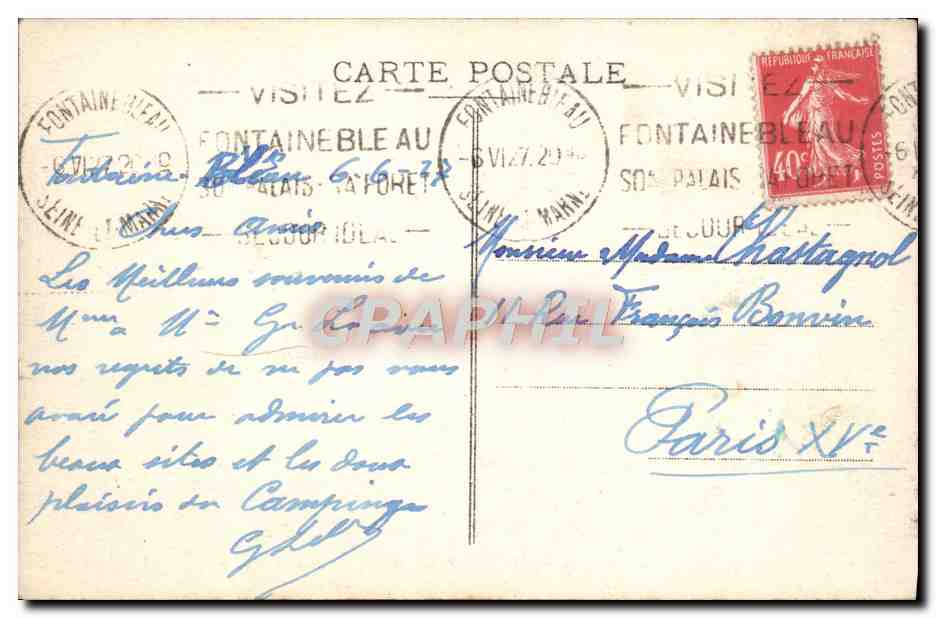 CARTE POSTALE
VISITEZ
FONTAINEBLEAU
SON PALAIS SA FORET
SEJOUR IDEAL
FONTAINEBLEAU
6 VI 27 20
SEINE ET MARNE
FONTAINEBLEAU
6 VI 27 20
SEINE ET MARNE
VISITEZ
FONTAINEBLEAU
SON PALAIS SA FORET
SEJOUR IDEAL
REPUBLIQUE FRANCAISE
40c
POSTES
Fontaine-Bleau 6-6-27
Chers Amis
Les Meilleurs souvenirs de
nos regrets de ne pas vous
avoir pour admirer les
beaux sites et les doux
plaisirs du Camping
Monsieur et Madame Chastagnol
Rue François Bonvin
Paris XVe
CPAPHIL